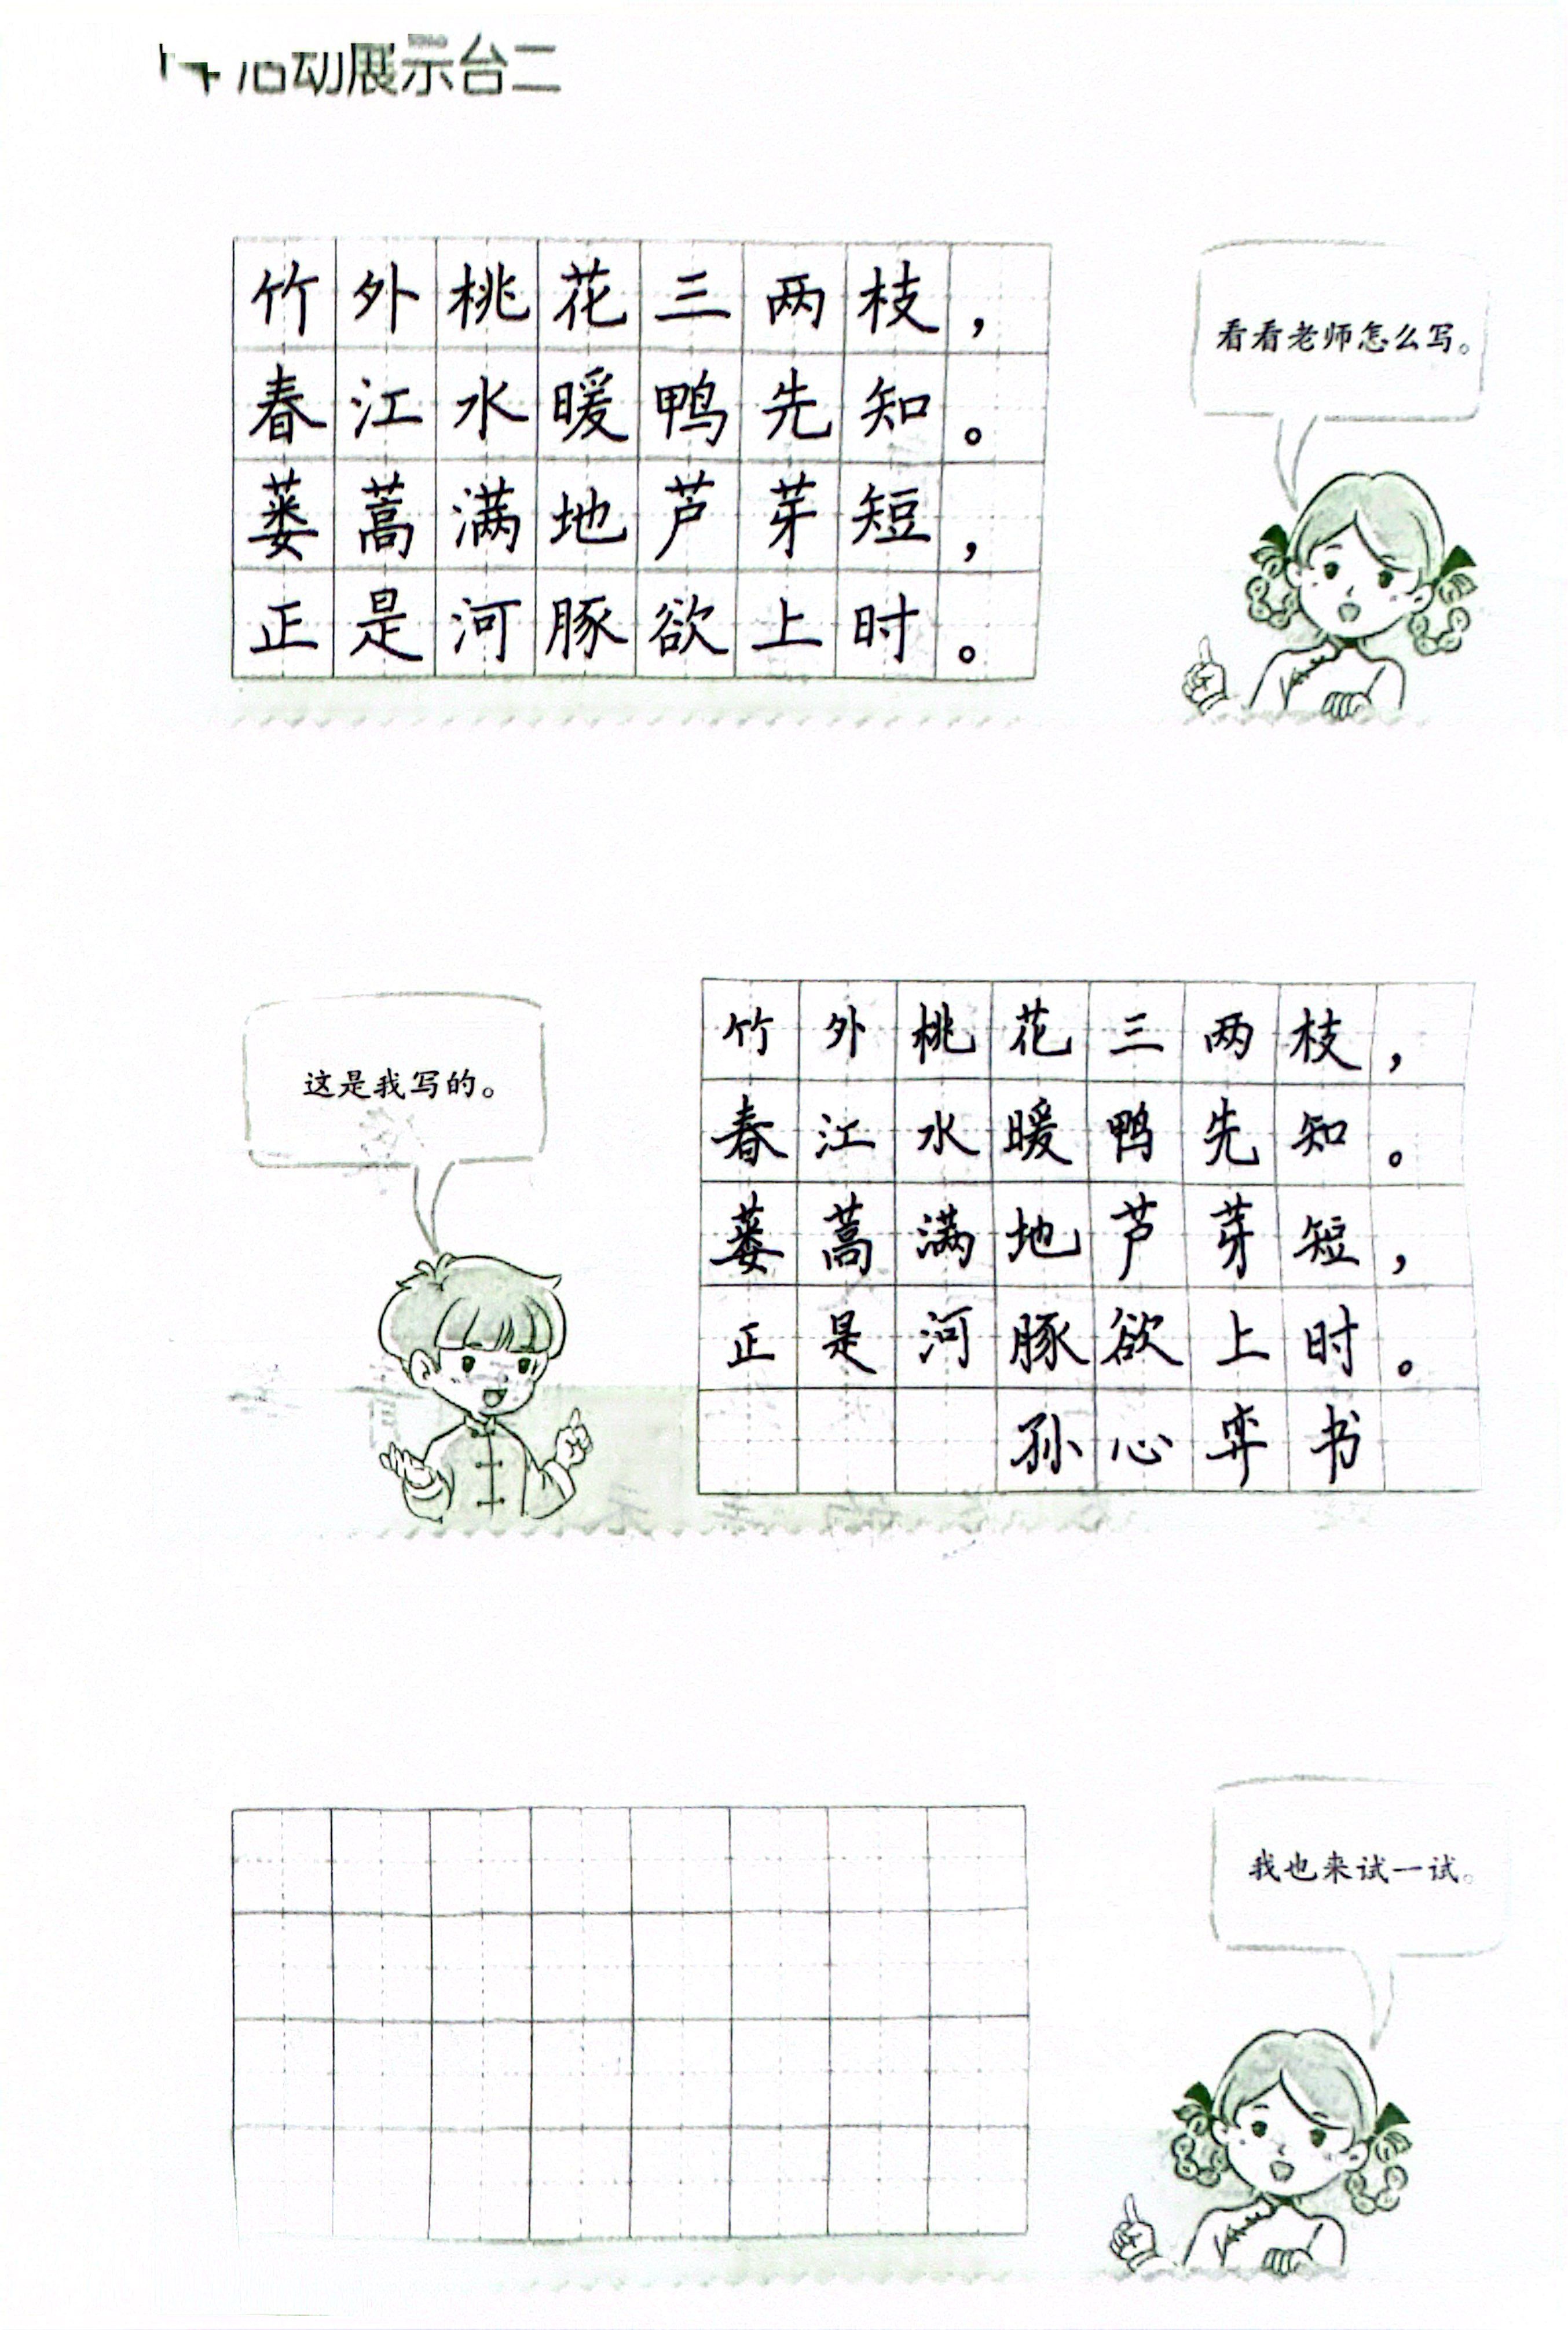 活动展示台二
竹外桃花三两枝，
春江水暖鸭先知。
蒌蒿满地芦芽短，
正是河豚欲上时。
看看老师怎么写。
这是我写的。
竹外桃花三两枝，
春江水暖鸭先知。
蒌蒿满地芦芽短，
正是河豚欲上时。
孙心弈书
我也来试一试。